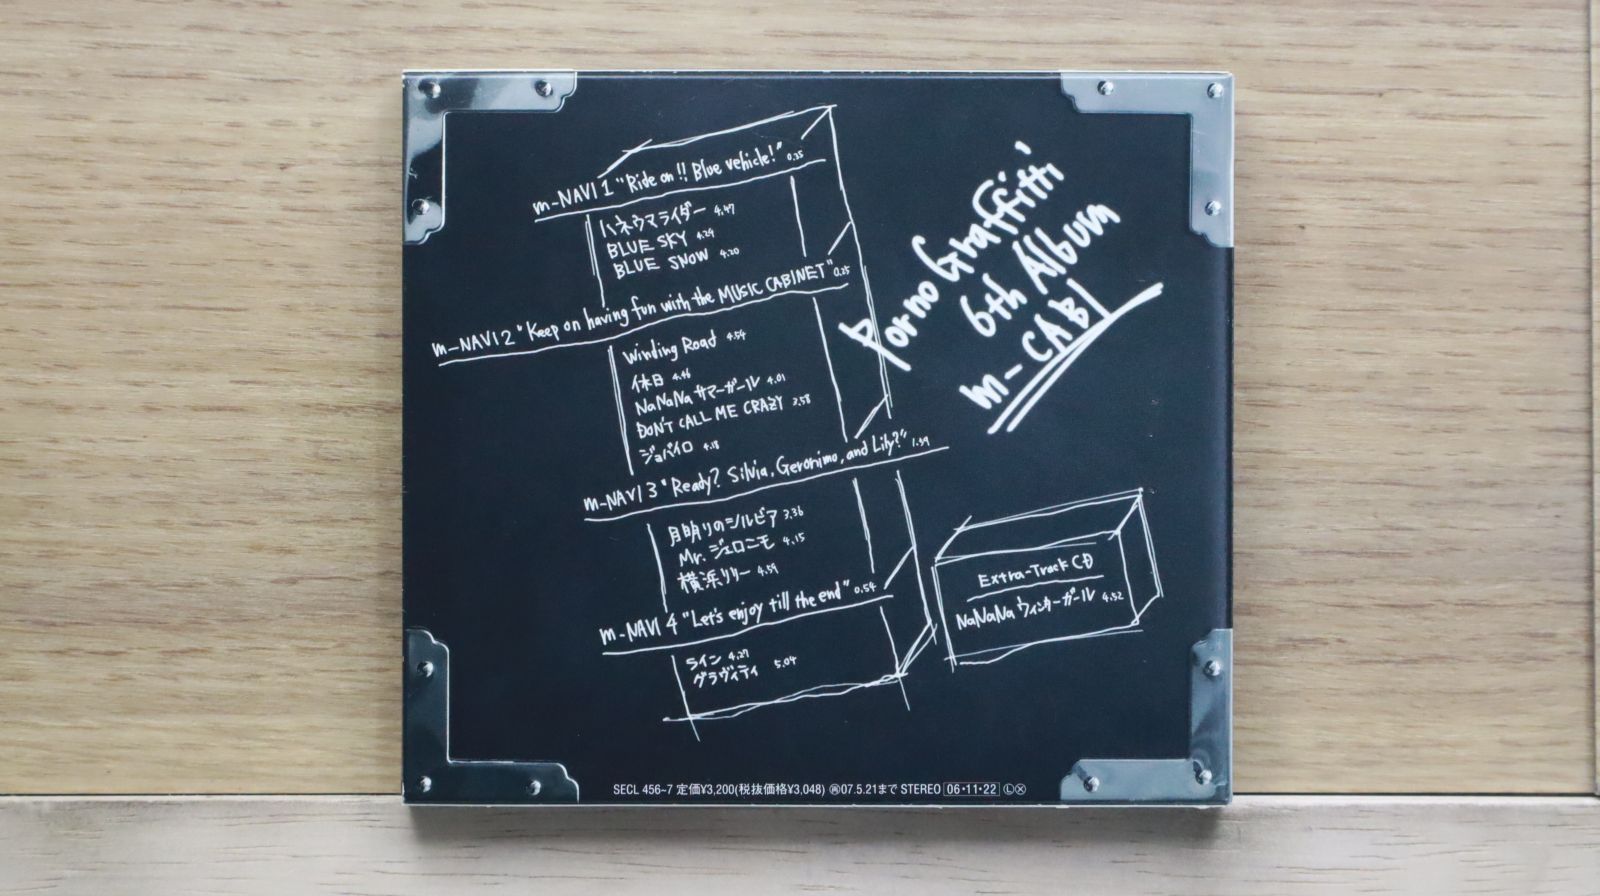 m-NAVI 1 "Ride on!! Blue vehicle!" 0.35
ハネウマライダー 4.47
BLUE SKY 4.29
BLUE SNOW 4.20
m-NAVI 2 "Keep on having fun with the MUSIC CABINET" 0.25
Winding Road 4.54
休日 4.46
NaNaNa サマーガール 4.01
DON'T CALL ME CRAZY 3.58
ジョバイロ 4.18
m-NAVI 3 "Ready? Silvia, Geronimo, and Lily?" 1.39
月明りのシルビア 3.36
Mr. ジェロニモ 4.15
横浜リリー 4.59
m-NAVI 4 "Let's enjoy till the end" 0.54
ライン 4.27
グラヴィティ 5.04
Porno Graffitti
6th Album
m-CABI
Extra-Track CD
NaNaNa ウィンターガール 4.52
SECL 456~7 定価¥3,200(税抜価格¥3,048) ㊢07.5.21まで STEREO 06・11・22 Ⓛ Ⓧ